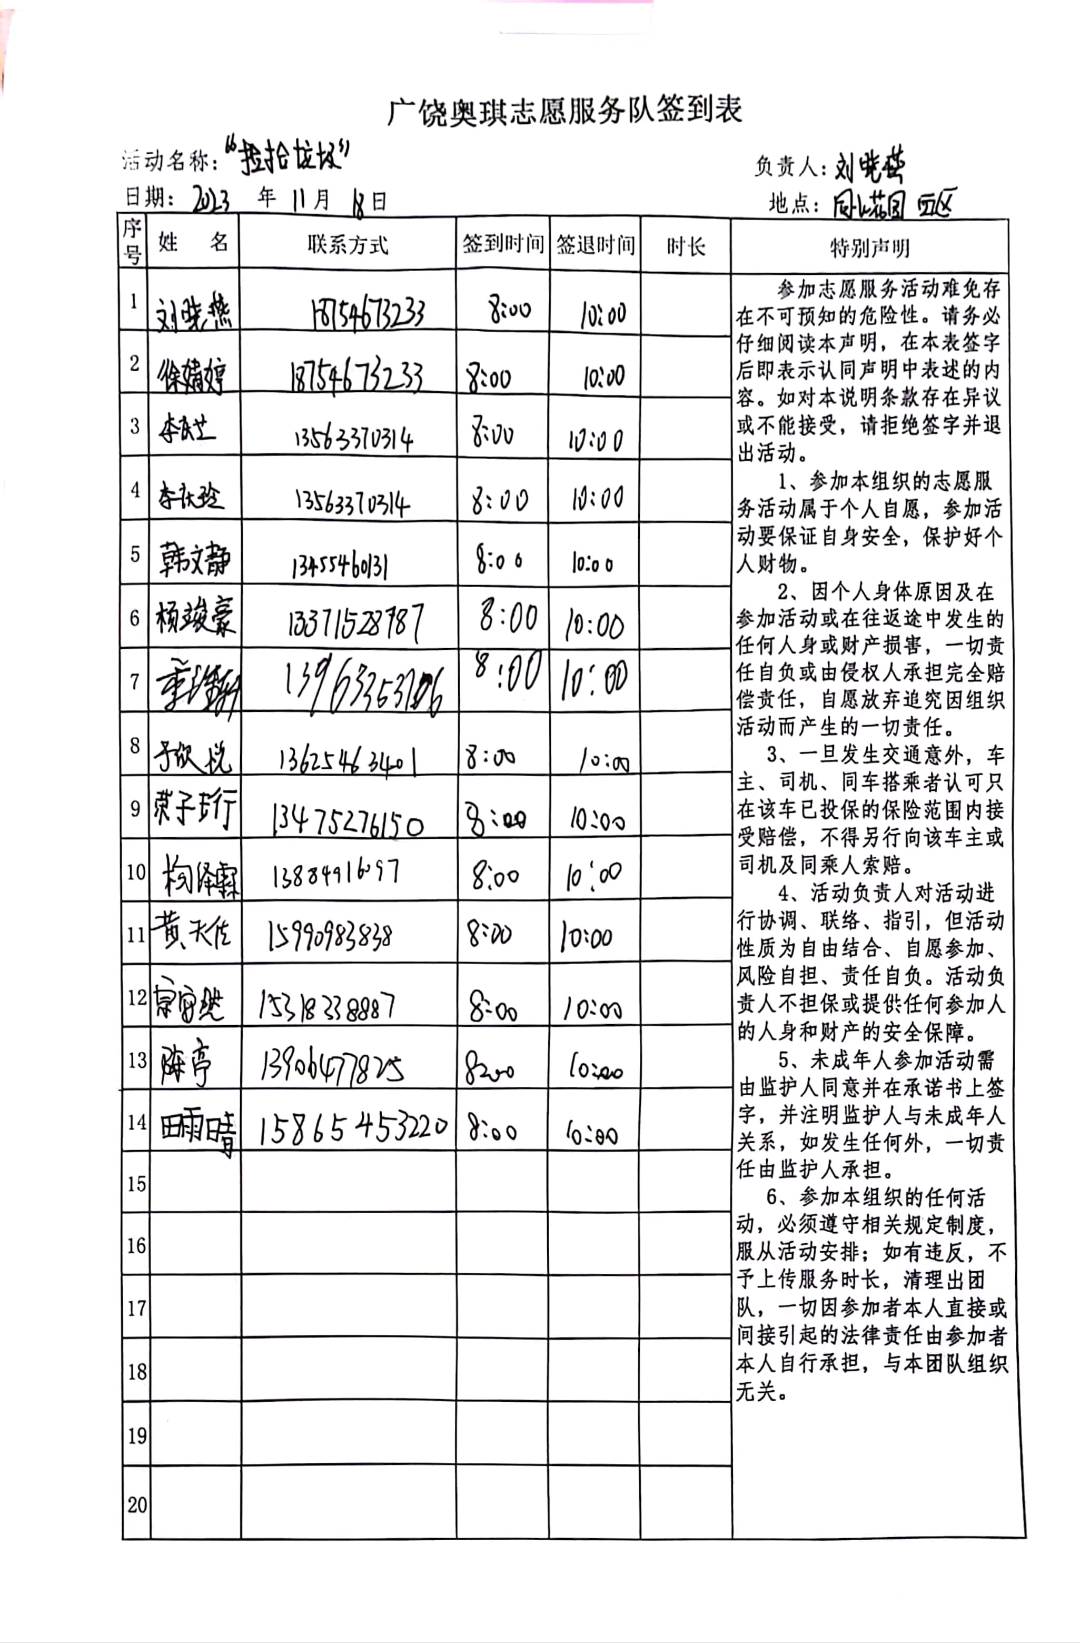 广饶奥琪志愿服务队签到表
活动名称：“捡拾垃圾” 负责人：刘晓燕
日期：2023 年 11 月 18 日 地点：同心花园 西区
序号 姓 名 联系方式 签到时间 签退时间 时长 特别声明
1 刘晓燕 18754673233 8:00 10:00
2 徐婧婷 18754673233 8:00 10:00
3 李庆芝 13563370314 8:00 10:00
4 李庆玲 13563370314 8:00 10:00
5 韩文静 13455460131 8:00 10:00
6 杨竣豪 13371528787 8:00 10:00
7 8:00 10:00
8 于欣悦 13625463401 8:00 10:00
9 荣子行 13475276150 8:00 10:00
10 泽霖 13884916097 8:00 10:00
11 黄天佐 15990983838 8:00 10:00
12 15318338887 8:00 10:00
13 陈亭 13906477825 8:00 10:00
14 田雨晴 15865453220 8:00 10:00
15
16
17
18
19
20
参加志愿服务活动难免存
在不可预知的危险性。请务必
仔细阅读本声明，在本表签字
后即表示认同声明中表述的内
容。如对本说明条款存在异议
或不能接受，请拒绝签字并退
出活动。
1、参加本组织的志愿服
务活动属于个人自愿，参加活
动要保证自身安全，保护好个
人财物。
2、因个人身体原因及在
参加活动或在往返途中发生的
任何人身或财产损害，一切责
任自负或由侵权人承担完全赔
偿责任，自愿放弃追究因组织
活动而产生的一切责任。
3、一旦发生交通意外，车
主、司机、同车搭乘者认可只
在该车已投保的保险范围内接
受赔偿，不得另行向该车主或
司机及同乘人索赔。
4、活动负责人对活动进
行协调、联络、指引，但活动
性质为自由结合、自愿参加、
风险自担、责任自负。活动负
责人不担保或提供任何参加人
的人身和财产的安全保障。
5、未成年人参加活动需
由监护人同意并在承诺书上签
字，并注明监护人与未成年人
关系，如发生任何外，一切责
任由监护人承担。
6、参加本组织的任何活
动，必须遵守相关规定制度，
服从活动安排；如有违反，不
予上传服务时长，清理出团
队，一切因参加者本人直接或
间接引起的法律责任由参加者
本人自行承担，与本团队组织
无关。